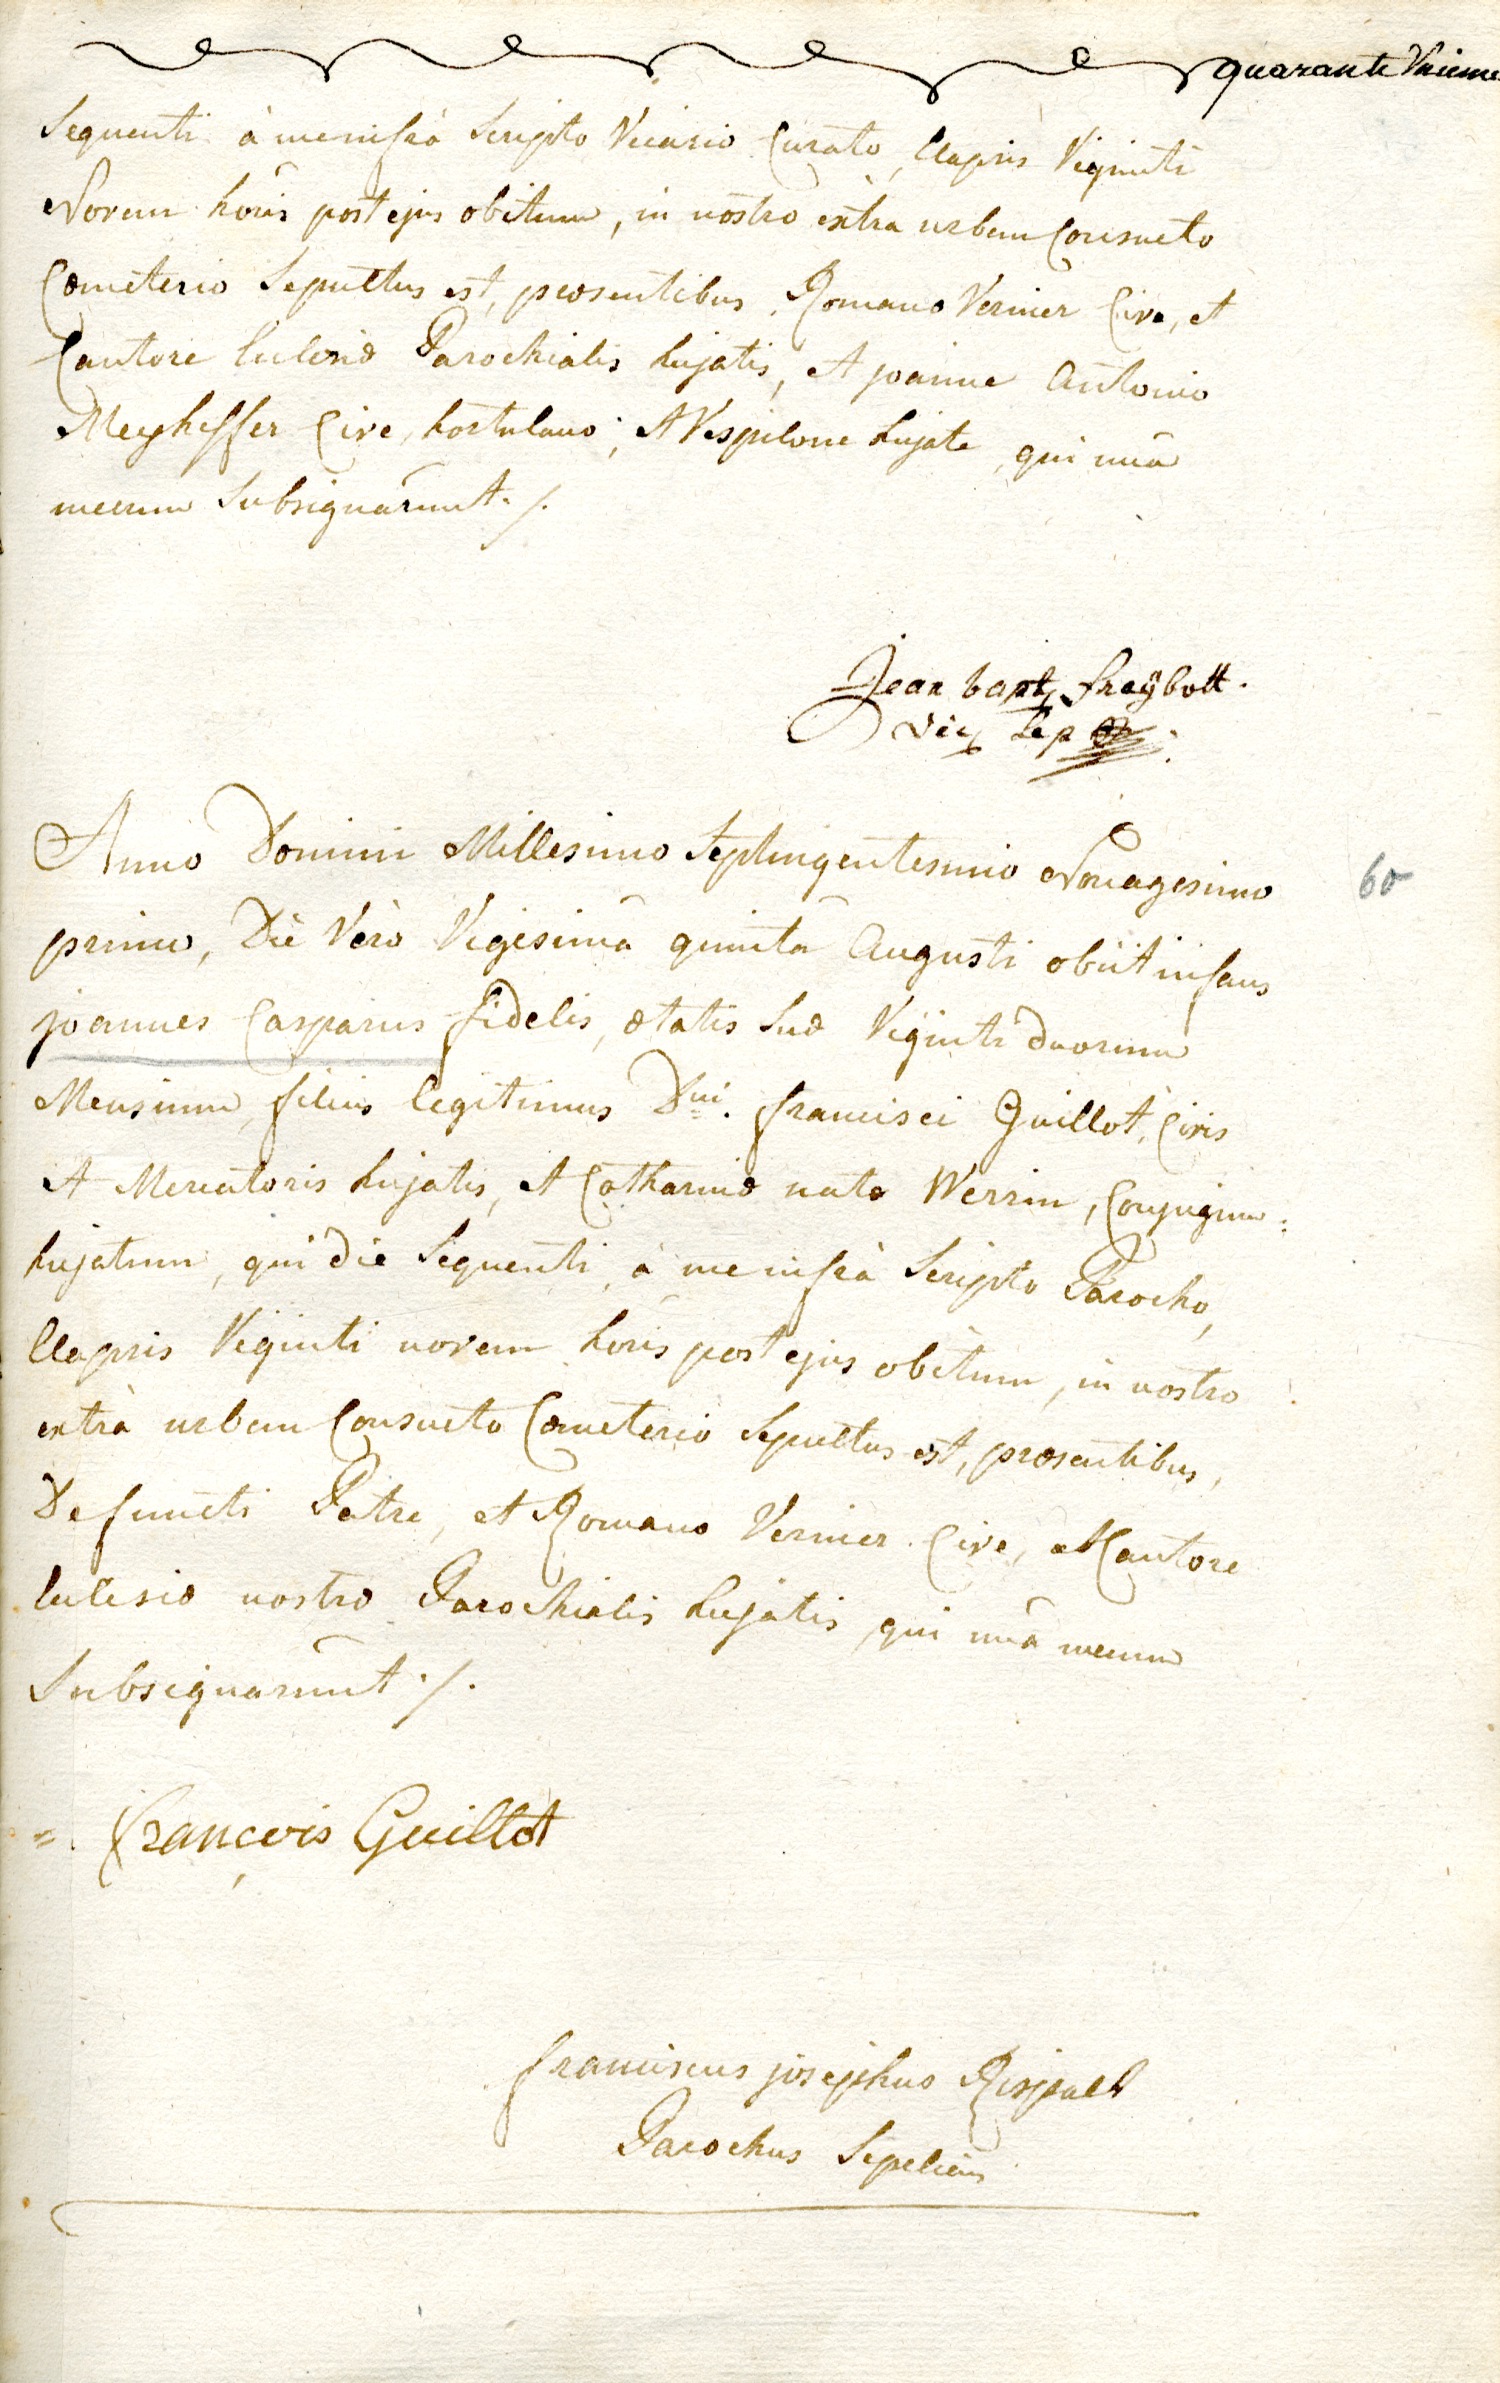 quarante Unieme
Sequenti à me infrà Scripto Vicario Curato, Elapsis Viginti
Novem horis post ejus obitum, in nostro extra urbem Consueto
Cœmeterio Sepultus est, præsentibus, Romano Vernier Cive, et
Cantore Ecclesiæ Parochialis hujatis, et joanne Antonio
Meyheffer Cive, hortulano, et Vespilone hujate, qui unà
mecum Subsignârunt ./.
Jean bapt freÿbott.
Vic Sep
Anno Domini Millesimo Septingentesimo Nonagesimo
primo, Die Verò Vigesimâ quintâ Augusti obiit infans
joannes Casparus fidelis, ætatis Suæ Viginti duorum
Mensium, filius legitimus Dni. francisci Guillot, Civis
et Mercatoris hujatis, et Catharinæ natæ Werrin, Conjugum
hujatum, qui die Sequenti, à me infrà Scripto Parocho,
Elapsis Viginti novem horis post ejus obitum, in nostro
extrà urbem Consueto Cœmeterio Sepultus est, præsentibus,
Defuncti Patre, et Romano Vernier Cive, et Cantore
Ecclesiæ nostræ Parochialis hujatis, qui unà mecum
Subsignarunt ./.
60
françois Guillot
franciscus josephus
Parochus Sepeliens